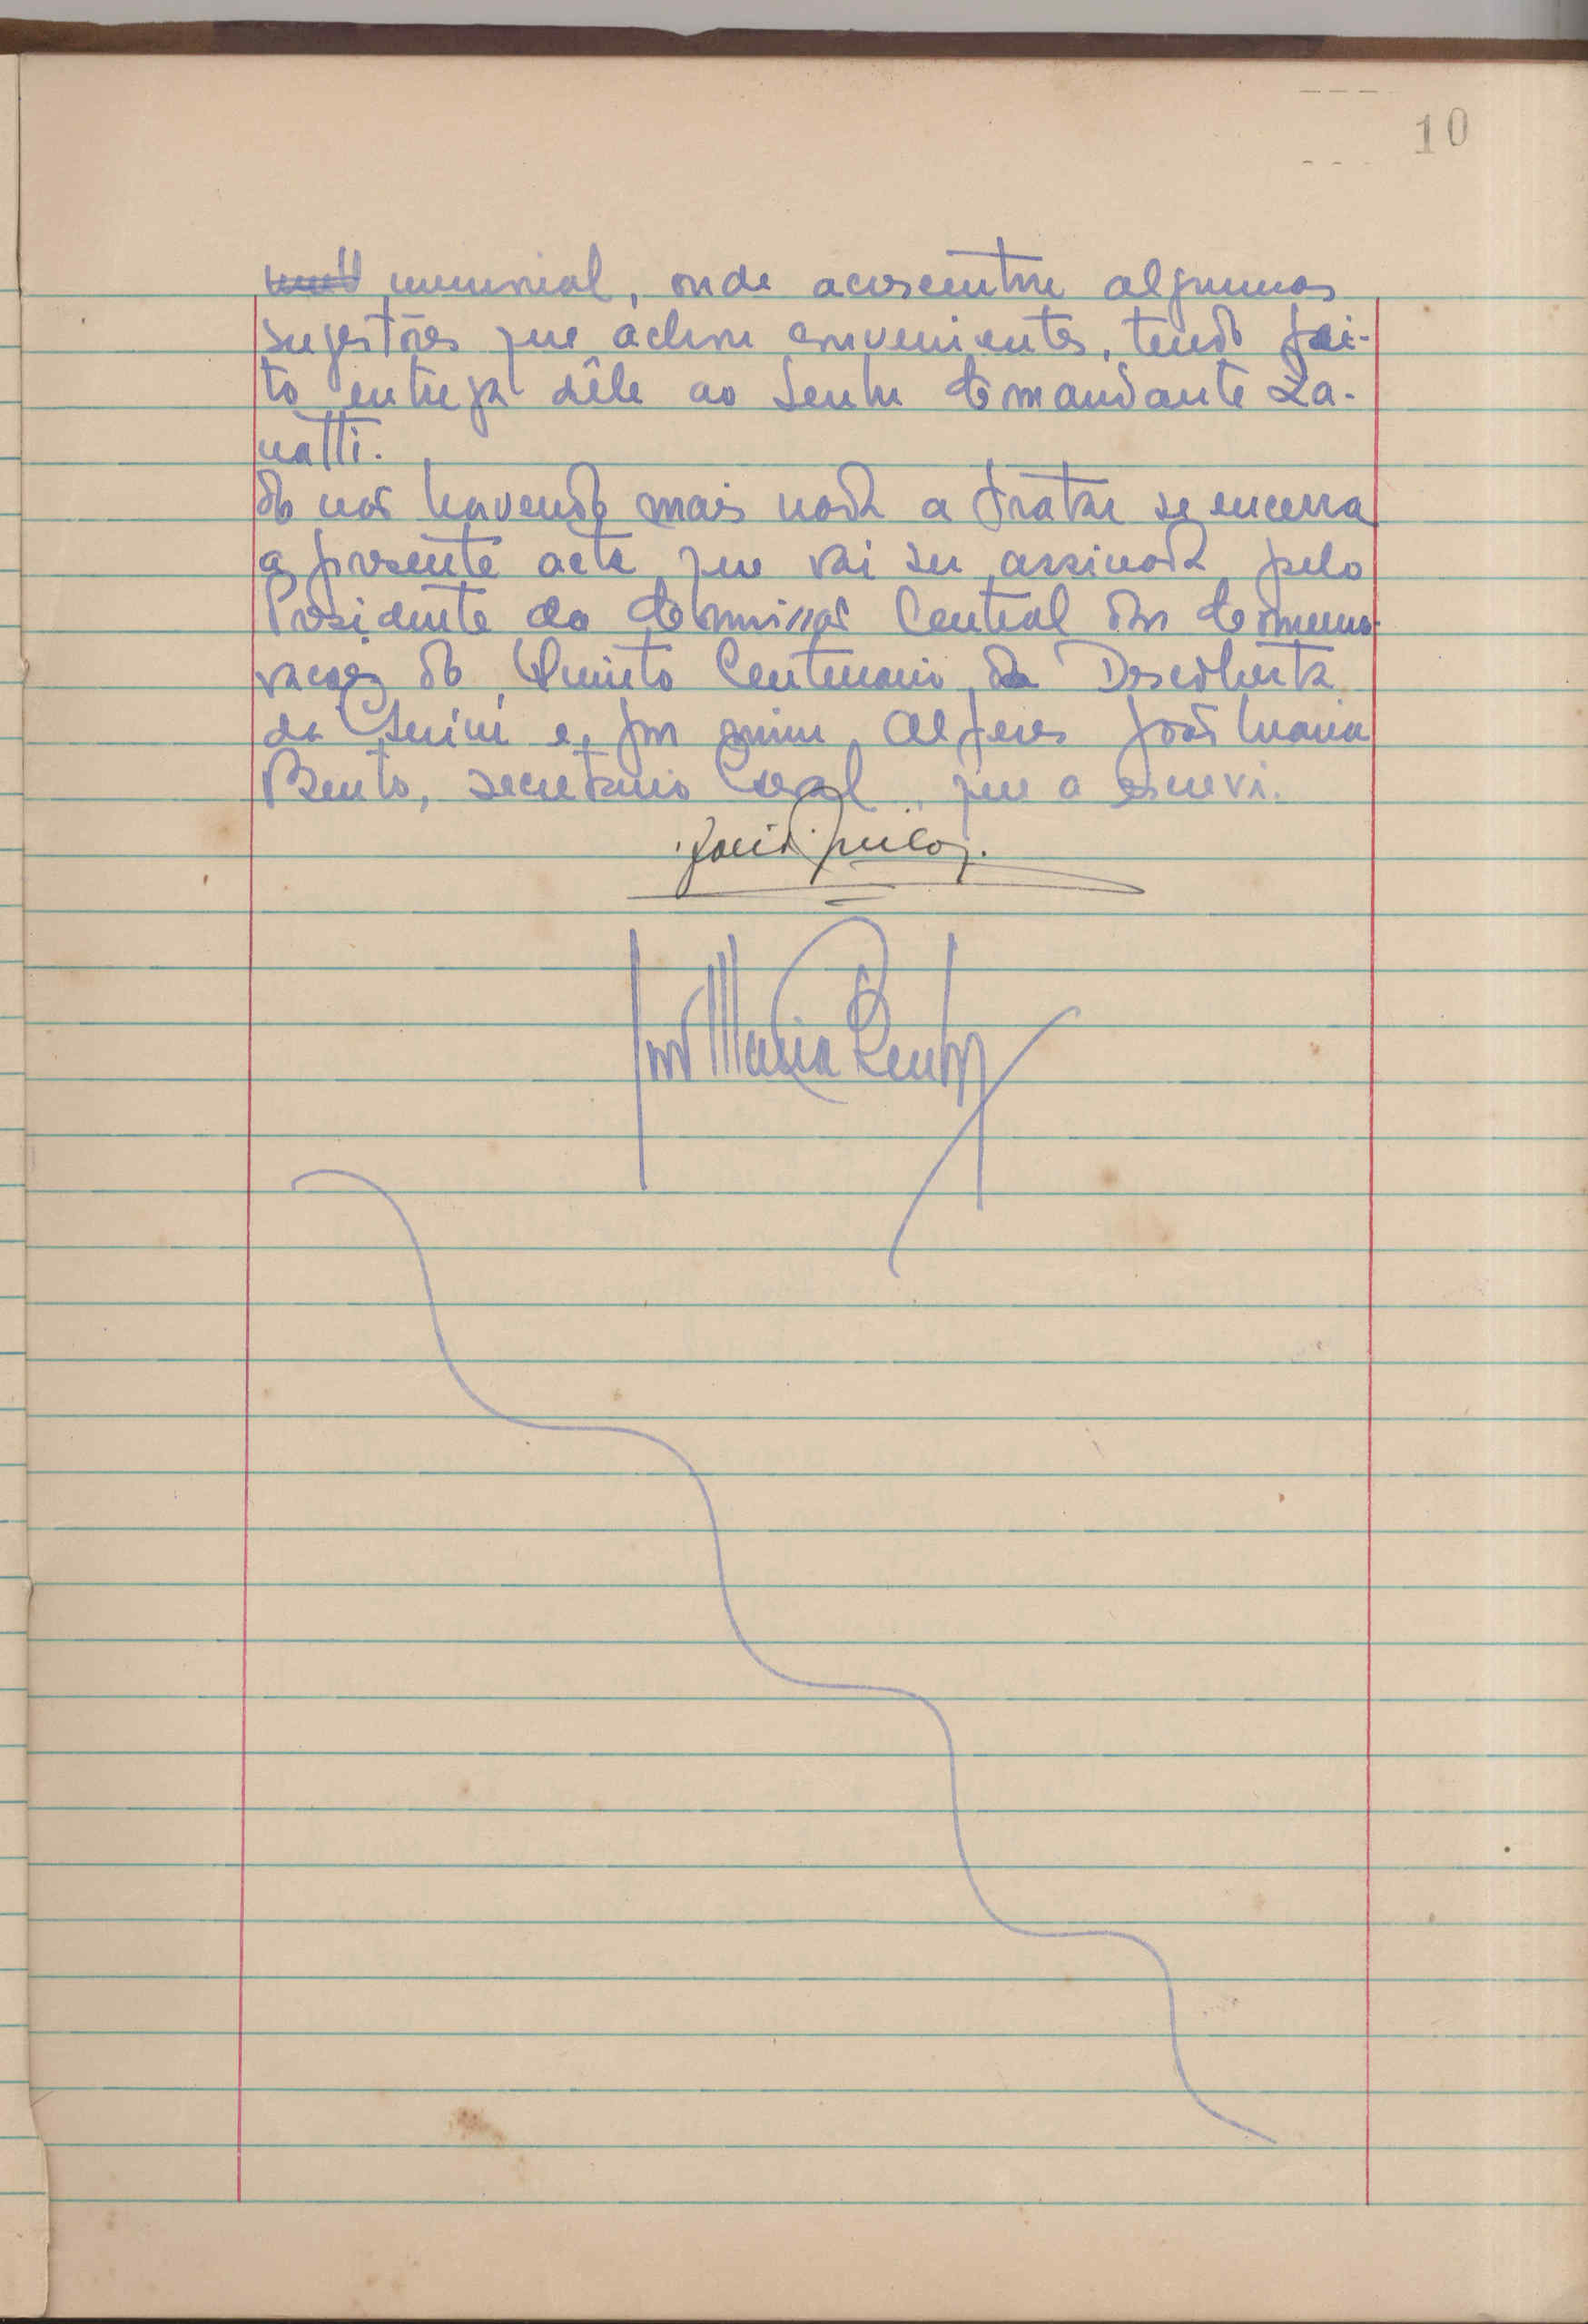 10
memorial, onde acrescentou algumas
sugestões que achou convenientes, tendo fei-
to entrega dêle ao Senhor Comandante Za-
natti.
E não havendo mais nada a tratar se encerra
a presente acta que vai ser assinada pelo
Presidente da Comissão Central das Comemo-
racoes do Quinto Centenario da Descoberta
da Guiné e, por mim, Alferes João Maria
Bento, secretario Geral, que a escrevi.
João Maria Bento